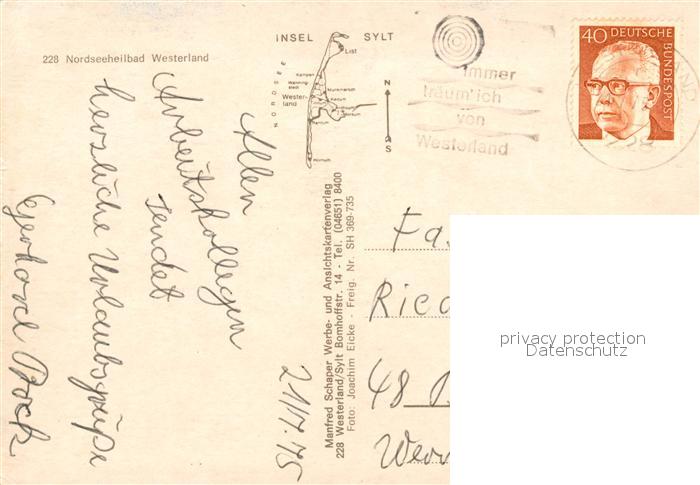 228 Nordseeheilbad Westerland
INSEL SYLT
List
Kampen
Wenning-
stedt
Wester-
land
Munkmarsch
Keitum
Morsum
Rantum
Hörnum
NORDSEE
N
S
Immer
träum' ich
von
Westerland
40 DEUTSCHE
BUNDESPOST
228
Allen
Arbeitskollegen
sendet
herzliche Urlaubsgrüße
Gerhard Bock
21.7.75
Manfred Schaper Werbe- und Ansichtskartenverlag
228 Westerland/Sylt Bomhoffstr. 14 - Tel. (04651) 8400
Foto: Joachim Eicke - Freig. Nr. SH 369-735
Fa.
Ried
48
Wer
privacy protection
Datenschutz